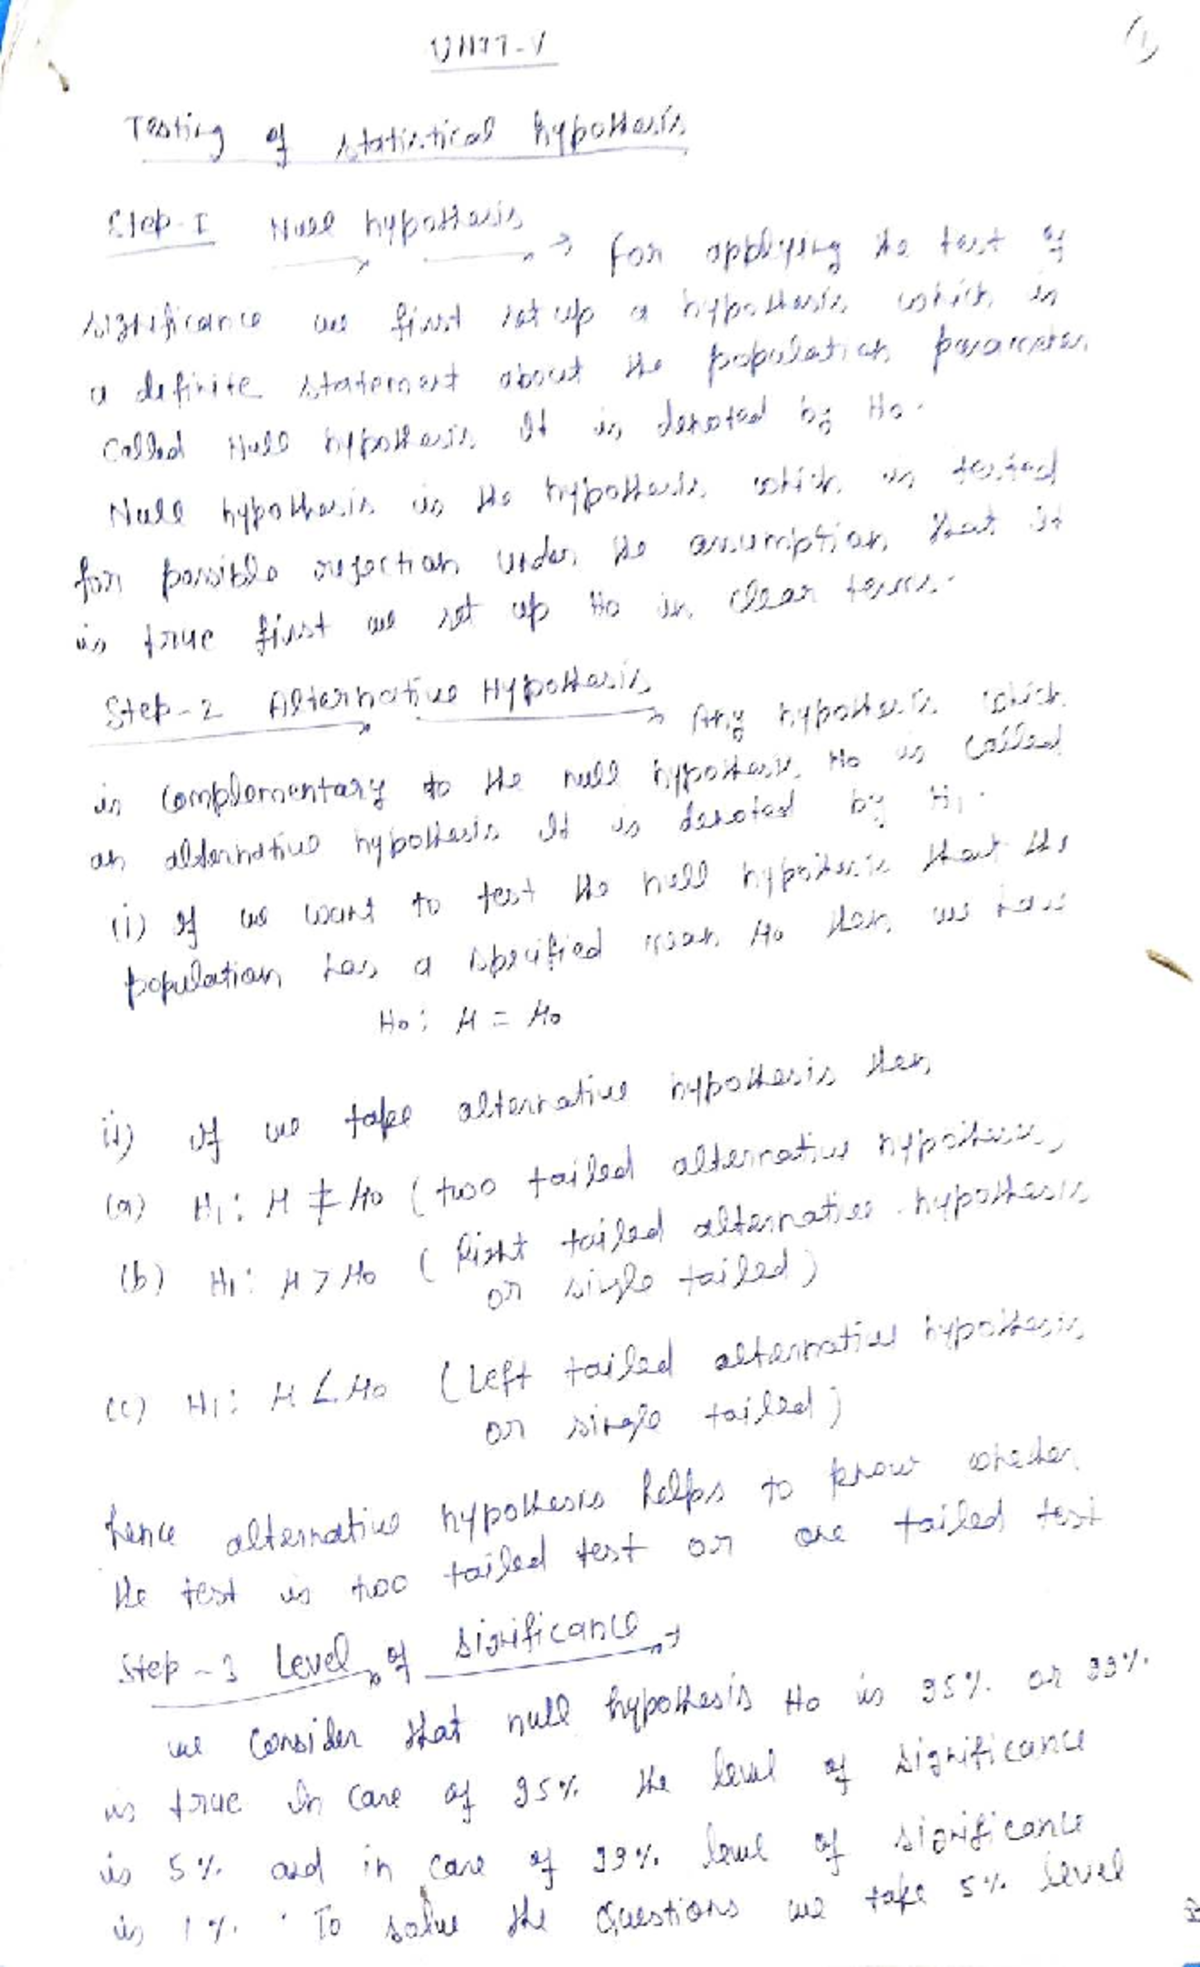 (1)
UNIT-V
Testing of statistical hypothesis
Step-I Null hypothesis → for applying the test of
significance we first set up a hypothesis which is
a definite statement about the population parameter
called Null hypothesis It is denoted by H₀.
Null hypothesis is the hypothesis which is tested
for possible rejection under the assumption that it
is true first we set up H₀ in clear terms.
Step-2 Alternative Hypothesis → Any hypothesis which
is complementary to the null hypothesis H₀ is called
an alternative hypothesis It is denoted by H₁.
(i) If we want to test the null hypothesis that the
population has a specified mean μ₀ then we have
H₀: μ = μ₀
ii) if we take alternative hypothesis then
(a) H₁: μ ≠ μ₀ (two tailed alternative hypothesis)
(b) H₁: μ > μ₀ (Right tailed alternative hypothesis
or single tailed)
(c) H₁: μ < μ₀ (Left tailed alternative hypothesis
or single tailed)
hence alternative hypothesis helps to know whether
the test is two tailed test or one tailed test
Step-3 Level of significance →
we consider that null hypothesis H₀ is 95% or 99%
is true In case of 95% the level of significance
is 5% and in case of 99% level of significance
is 1%. To solve the questions we take 5% level